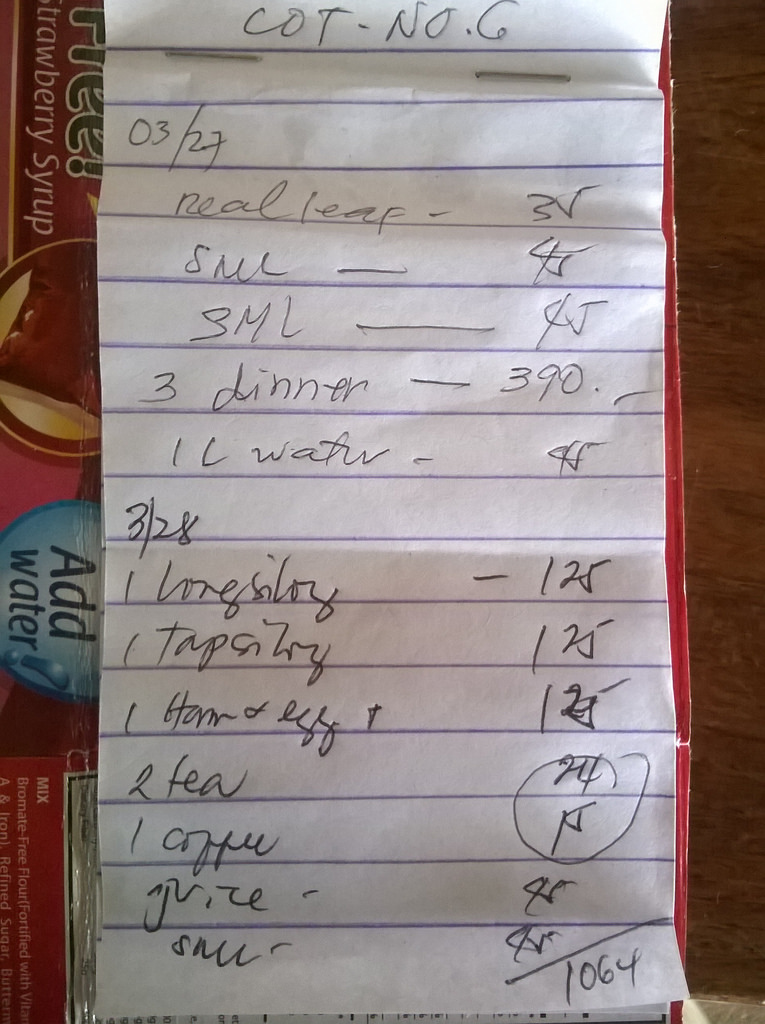 COT-NO.6
03/27
real leaf - 35
SML — 45
SML — 45
3 dinner — 390.-
1L water - 45
3/28
1 longsilog - 125
1 tapsilog 125
1 Ham & egg 125
2 tea 24
1 coffee 15
juice - 45
SML - 45
1064
Free!
Strawberry Syrup
Add
water!
MIX
Bromate-Free Flour(Fortified with
A & Iron), Refined Sugar,